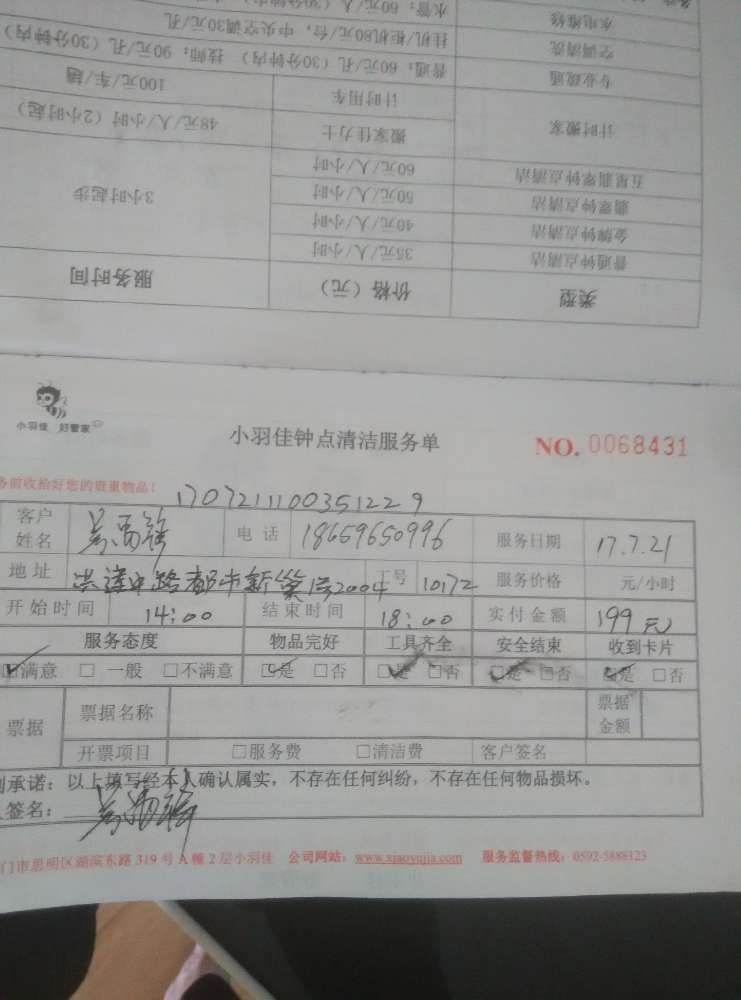 水管：60元/人（30分钟内）
水电维修
挂机/柜机80元/台，中央空调30元/孔
空调清洗
普通：60元/孔（30分钟内） 技师：90元/孔（30分钟内）
专业疏通
100元/车/趟
计时用车
48元/人/小时（2小时起）
搬家佳力士
计时搬家
60元/人/小时
五星翡翠钟点清洁
50元/人/小时
翡翠钟点清洁
3小时起步
40元/人/小时
金牌钟点清洁
35元/人/小时
普通钟点清洁
服务时间
价格（元）
类型
小羽佳 好管家
小羽佳钟点清洁服务单
NO. 0068431
务前收拾好您的贵重物品！
1707211100351229
客户姓名
电话 18659650996 服务日期 17.7.21
地址 洪莲中路都市新巢 2004 工号 10172 服务价格 元/小时
开始时间 14:00 结束时间 18:00 实付金额 199元
服务态度 物品完好 工具齐全 安全结束 收到卡片
满意 □ 一般 □不满意 是 □否 是 □否 是 □否 是 □否
票据 票据名称 票据金额
开票项目 □服务费 □清洁费 客户签名
承诺：以上填写经本人确认属实，不存在任何纠纷，不存在任何物品损坏。
人签名：
门市思明区湖滨东路 319 号 A 幢 2 层小羽佳 公司网站：www.xiaoyujia.com 服务监督热线：0592-5888123